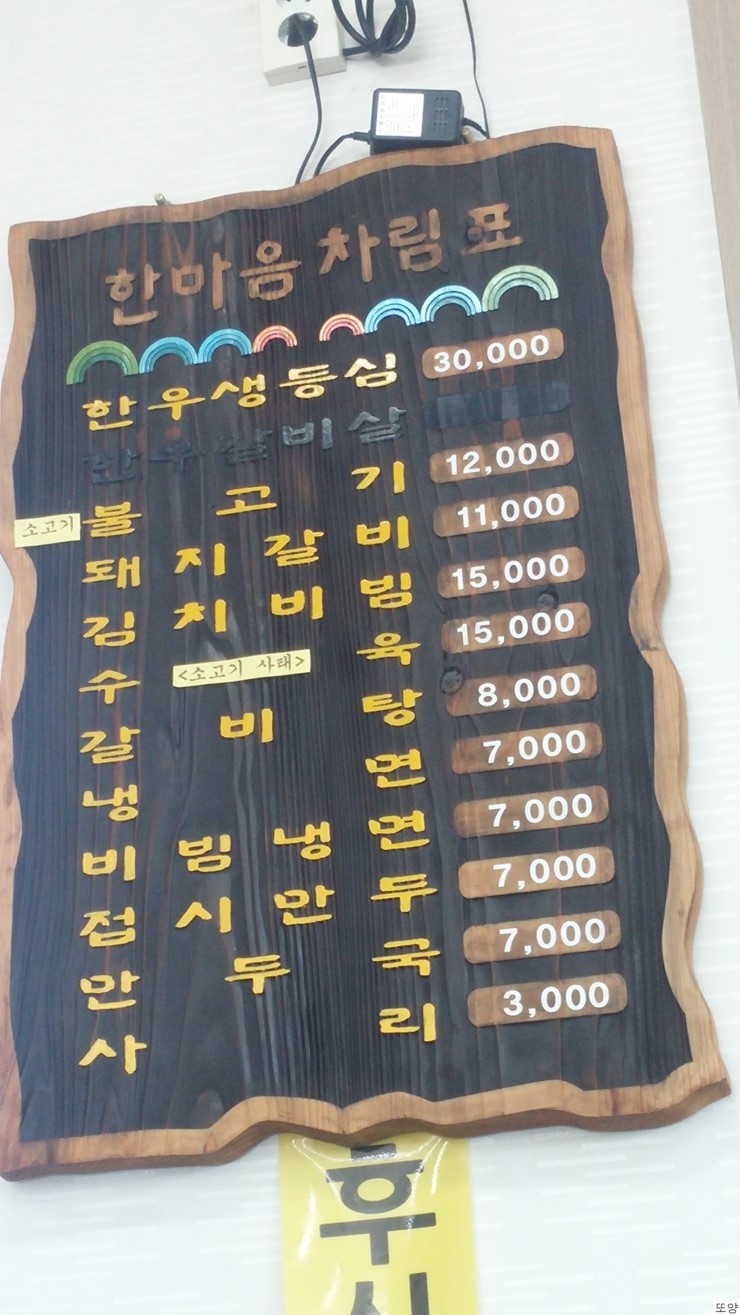 한마음 차림표
한우생등심 30,000
한우갈비살
소고기 불고기 12,000
돼지갈비 11,000
김치비빔 15,000
수육 15,000
<소고기 사태>
갈비탕 8,000
냉면 7,000
비빔냉면 7,000
접시만두 7,000
만두국 7,000
사리 3,000
후
또양